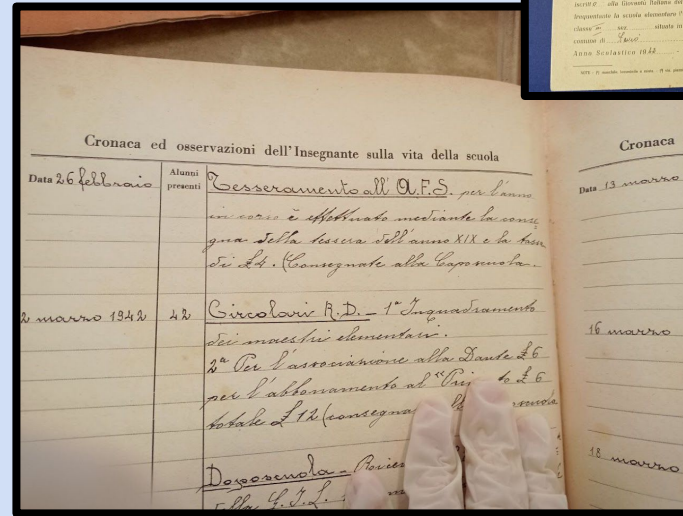 iscritto alla Gioventù Italiana del
frequentante la scuola elementare
classe sez. situata in
comune di
Anno Scolastico 1942
Cronaca ed osservazioni dell'Insegnante sulla vita della scuola
Data 26 febbraio
Alunni presenti
Tesseramento all' A.F.S. per l'anno
in corso è effettuato mediante la conse
gna della tessera dell'anno XIX e la tassa
di £4. (Consegnate alla Caposcuola.
2 marzo 1942 42 Circolari R.D. - 1ª Inquadramento
dei maestri elementari.
2ª Per l'associazione alla Dante £ 6
per l'abbonamento al "Pri to £ 6
totale £ 12 (consegna
Doposcuola -
della G.I.L.
Cronaca
Data 13 marzo
16 marzo
18 marzo